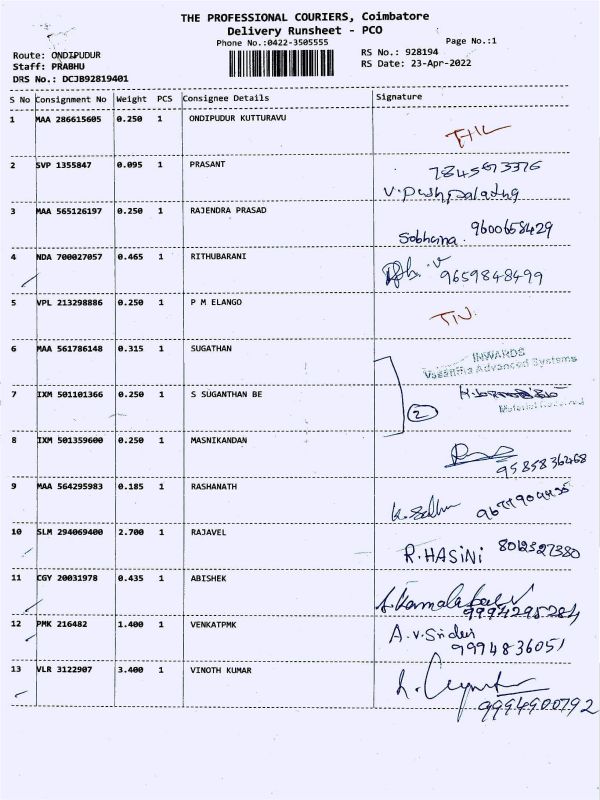 THE PROFESSIONAL COURIERS, Coimbatore
Delivery Runsheet - PCO
Phone No.:0422-3505555 Page No.:1
Route: ONDIPUDUR RS No.: 928194
Staff: PRABHU RS Date: 23-Apr-2022
DRS No.: DCJB92819401
S No Consignment No Weight PCS Consignee Details Signature
1 MAA 286615605 0.250 1 ONDIPUDUR KUTTURAVU
2 SVP 1355847 0.095 1 PRASANT
3 MAA 565126197 0.250 1 RAJENDRA PRASAD
Sobhana. 9600658429
4 NDA 700027057 0.465 1 RITHUBARANI
9659848499
5 VPL 213298886 0.250 1 P M ELANGO
6 MAA 561786148 0.315 1 SUGATHAN
INWARDS
Advanced Systems
7 IXM 501101366 0.250 1 S SUGANTHAN BE
2
Material Received
8 IXM 501359600 0.250 1 MASNIKANDAN
9585836468
9 MAA 564295983 0.185 1 RASHANATH
10 SLM 294069400 2.700 1 RAJAVEL
R.HASINI 8012327380
11 CGY 20031978 0.435 1 ABISHEK
9994295284
12 PMK 216482 1.400 1 VENKATPMK
A.V.Sridev
9994836051
13 VLR 3122907 3.400 1 VINOTH KUMAR
9994900792